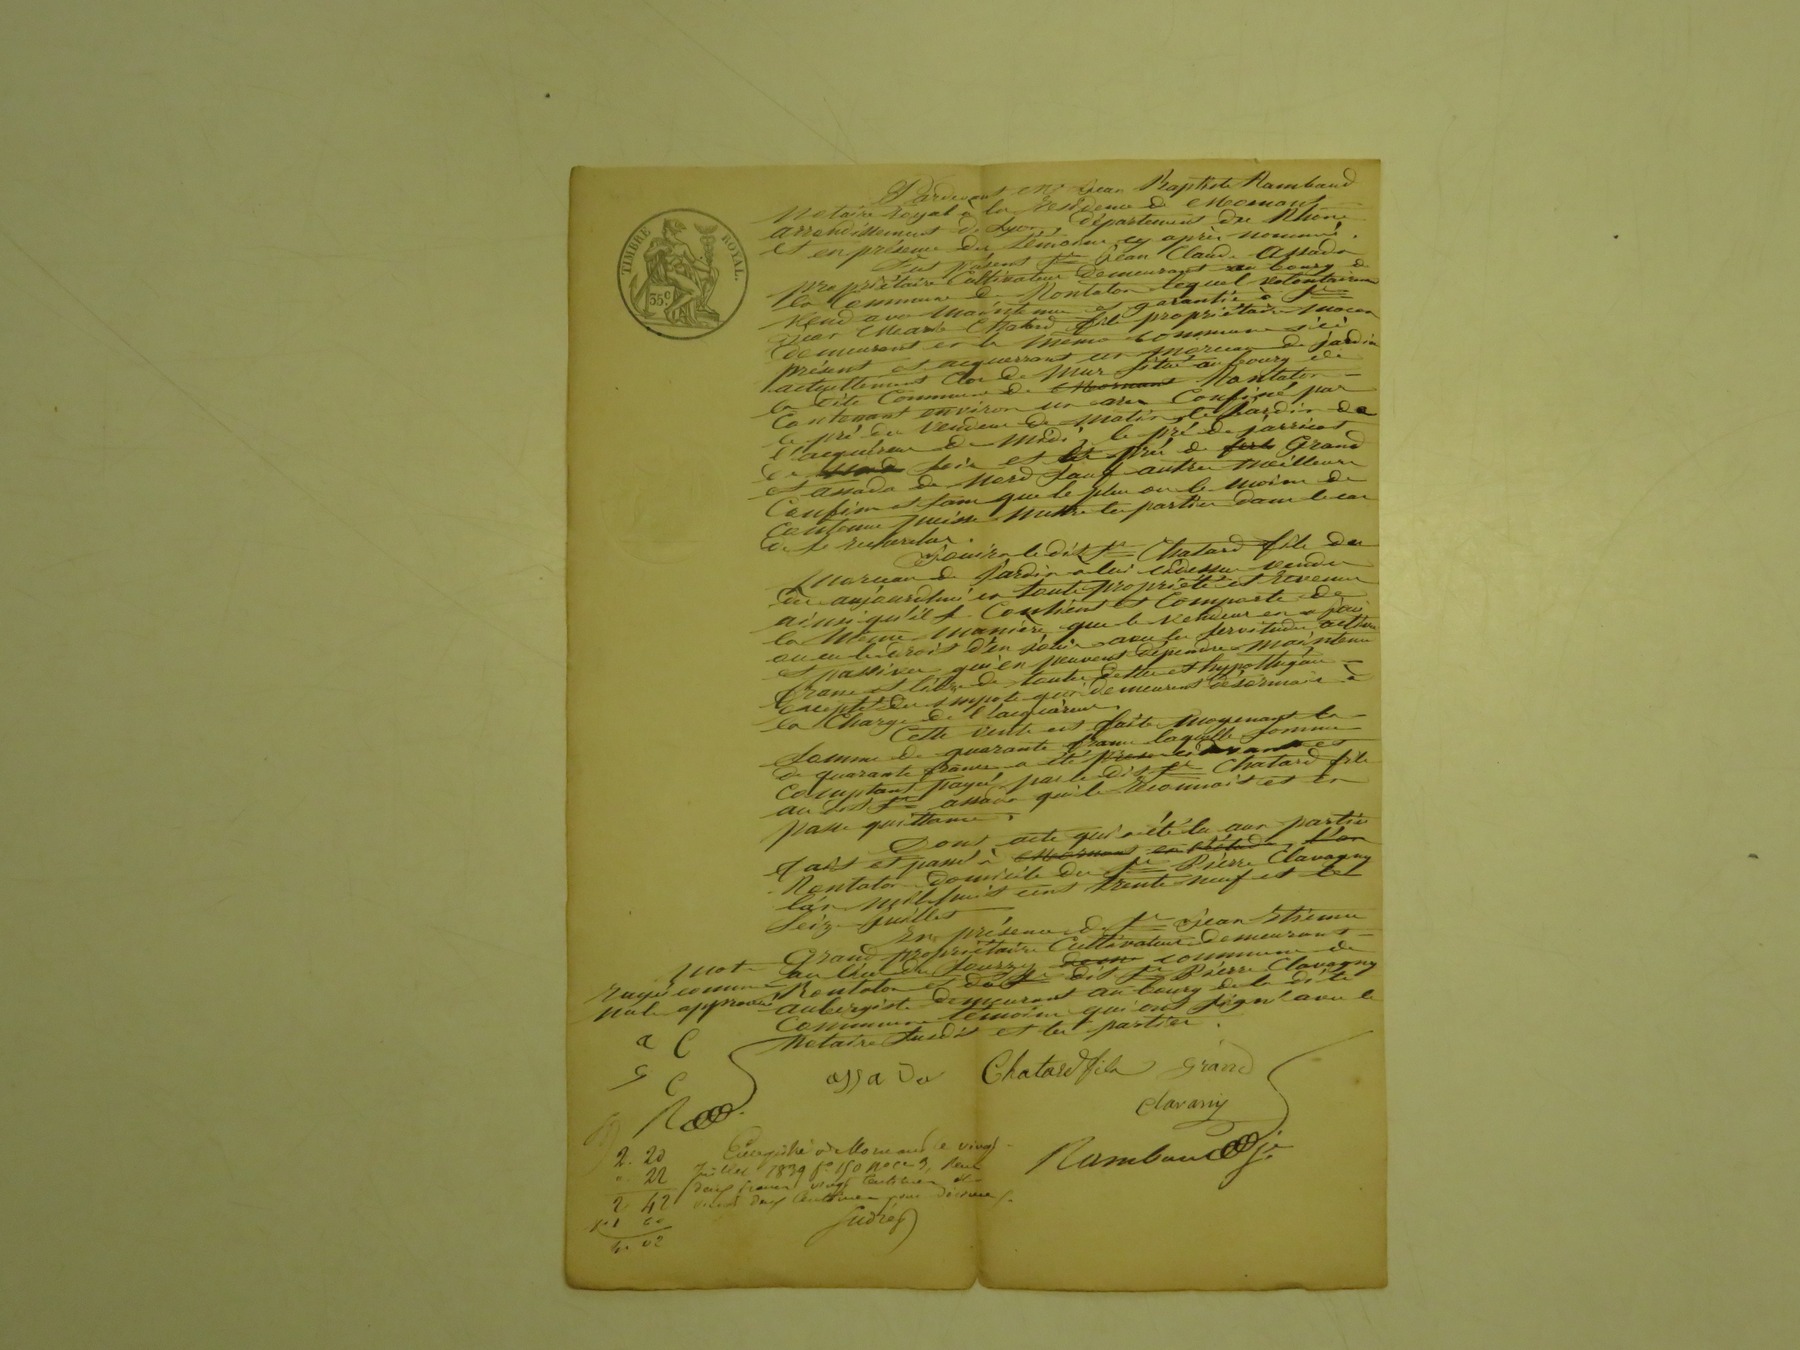 TIMBRE ROYAL.
35c
Pardevant Me Jean Baptiste Rambaud
Notaire royal à la résidence de Mornant
arrondissement de Lyon, département du Rhône
et en présence des témoins cy après nommés.
Fut présent Sr Jean Claude Assada
propriétaire cultivateur demeurant au bourg de
la Commune de Rontalon lequel volontairement
vend avec maintenue et garantie à Sr
Jean Marie Chatard fils propriétaire maçon
demeurant en la même commune ici
présent et acquerrant un morceau de jardin
actuellement clos de mur situé au bourg de
la dite Commune de Mornant Rontalon
Contenant environ un are Confiné par
le pré du vendeur de matin, le jardin de
l'acquéreur de midi, le pré de jarricot
de soir et le pré de Grand
et assada de Nord sauf autres meilleurs
Confins et sans que le plus ou le moins de
contenue puisse mettre les parties dans le cas
de se rechercher.
Jouira le dit Sr Chatard fils du
morceau de jardin à lui cidessus vendu
dès aujourdhui en toute propriété et revenu
ainsi qu'il se Contient et Comporte de
la même manière que le vendeur en a joui
ou eu le droit d'en jouir avec les servitudes actives
et passives qui en peuvent dépendre maintenu
franc et libre de toute dette et hypothèque
excepté des impots qui demeurent désormais à
la Charge de l'acquéreur.
Cette vente est faite moyenant la
somme de quarante francs laquelle somme
de quarante francs a été
comptant payé par le dit Sr Chatard fils
au dit Sr assada qui le reconnait et en
passe quittance.
Dont acte qui a été lu aux parties
fait et passé à Mornant en l'étude, l'an
Rontalon domicile du Sr Pierre Clavagny
l'an mil huit cent trente neuf et le
seize juillet
En présence de Sr Jean Etienne
Grand propriétaire Cultivateur demeurant
au lieu de commune de
Rontalon et du dit Sr Pierre Clavagny
aubergiste demeurant au bourg de la dite
Commune témoins qui ont signé avec le
Notaire susdit et les parties.
mots
rayés comme
nuls approuvés
a C
G C
R
assada Chatard fils Grand
Clavany
Rambaud
2. 20
" 22
2 42
1 60
4. 02
Enregistré à Mornant le vingt
juillet 1839 fo 150 Reçu
deux francs vingt centimes et
vingt deux centimes pour décime.